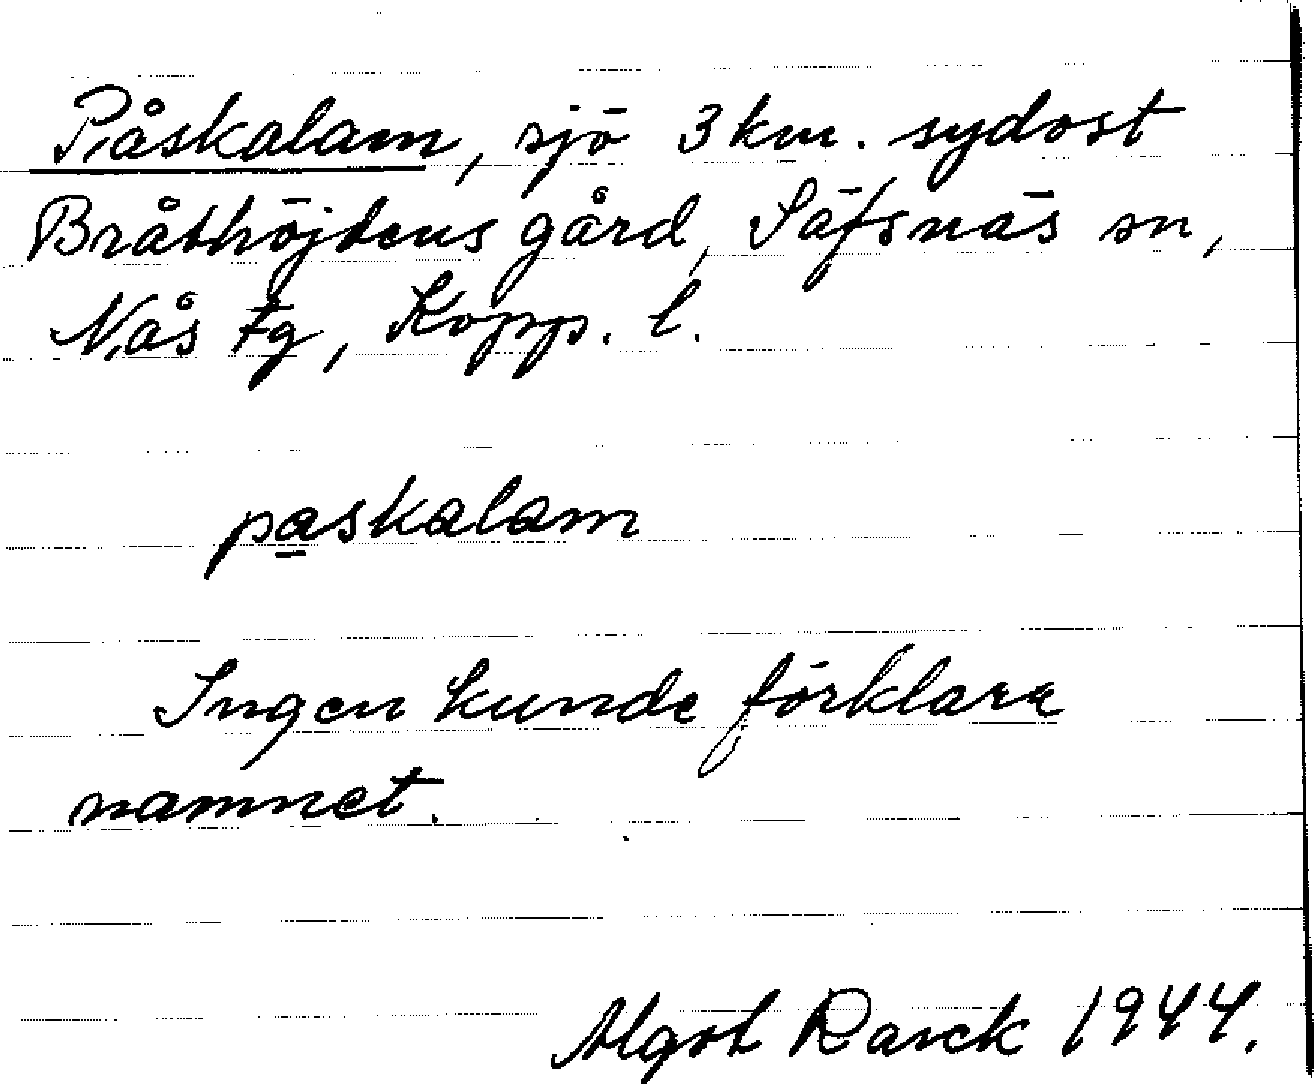 Påskalam, sjö 3 km. sydost
Bråthöjdens gård, Säfsnäs sn,
Nås tg, Kopp. l.
paskalam
Ingen kunde förklara
namnet.
Algot Rarck 1944.